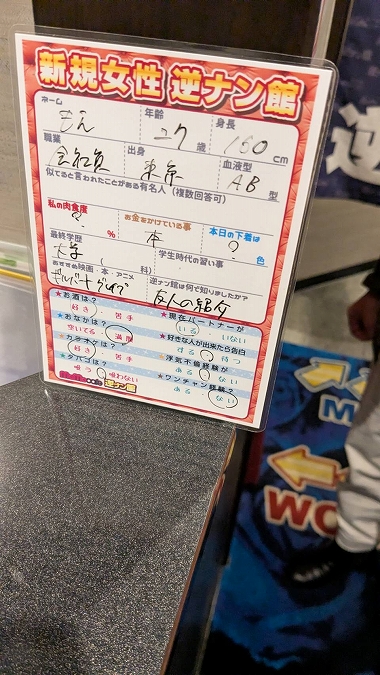 新規女性 逆ナン館
ネーム もえ 年齢 27 歳 身長 150 cm
職業 会社員 出身 東京 血液型 AB 型
似てると言われたことがある有名人(複数回答可)
私の肉食度 ? % お金をかけている事 本 本日の下着は ? 色
最終学歴 大学 ( 科) 学生時代の習い事
おすすめ映画・本・アニメ ギルバートグレイプ 逆ナン館は何で知りましたか? 友人の紹介
★お酒は? 好き ・ 苦手 ★現在パートナーが いる ・ いない
★おなかは? 空いてる ・ 満腹 ★好きな人が出来たら告白 する ・ 待つ
★カラオケは? 好き ・ 苦手 ★浮気不倫経験が ある ・ ない
★タバコは? 吸う ・ 吸わない ★ワンチャン経験が? ある ・ ない
cafe 逆ナン館
逆
M
WO